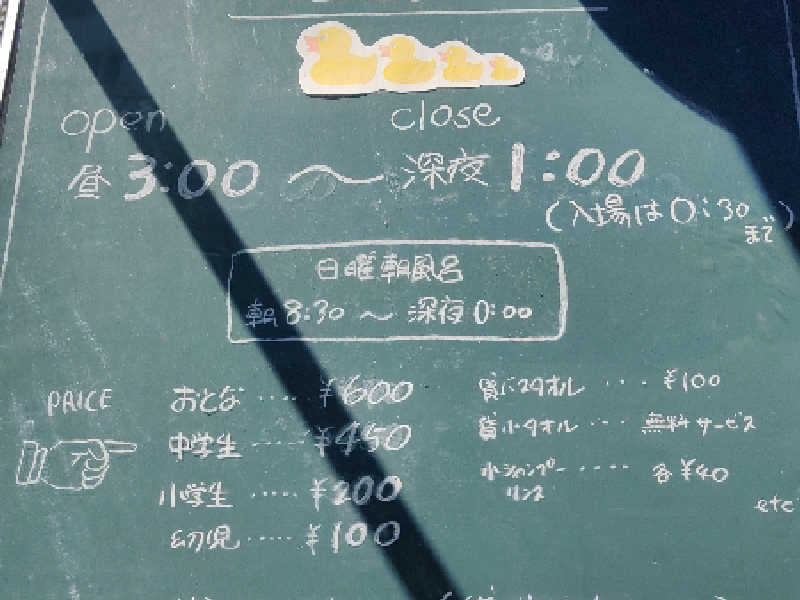 open close
昼 3:00 〜 深夜 1:00
(入場は0:30まで)
日曜朝風呂
朝 8:30 〜 深夜 0:00
PRICE
おとな ‥‥ ¥600
中学生 ‥‥ ¥450
小学生 ‥‥ ¥200
幼児 ‥‥ ¥100
貸バスタオル ‥‥ ¥100
貸小タオル ‥‥ 無料サービス
小シャンプー ‥‥ 各¥40
リンス
etc